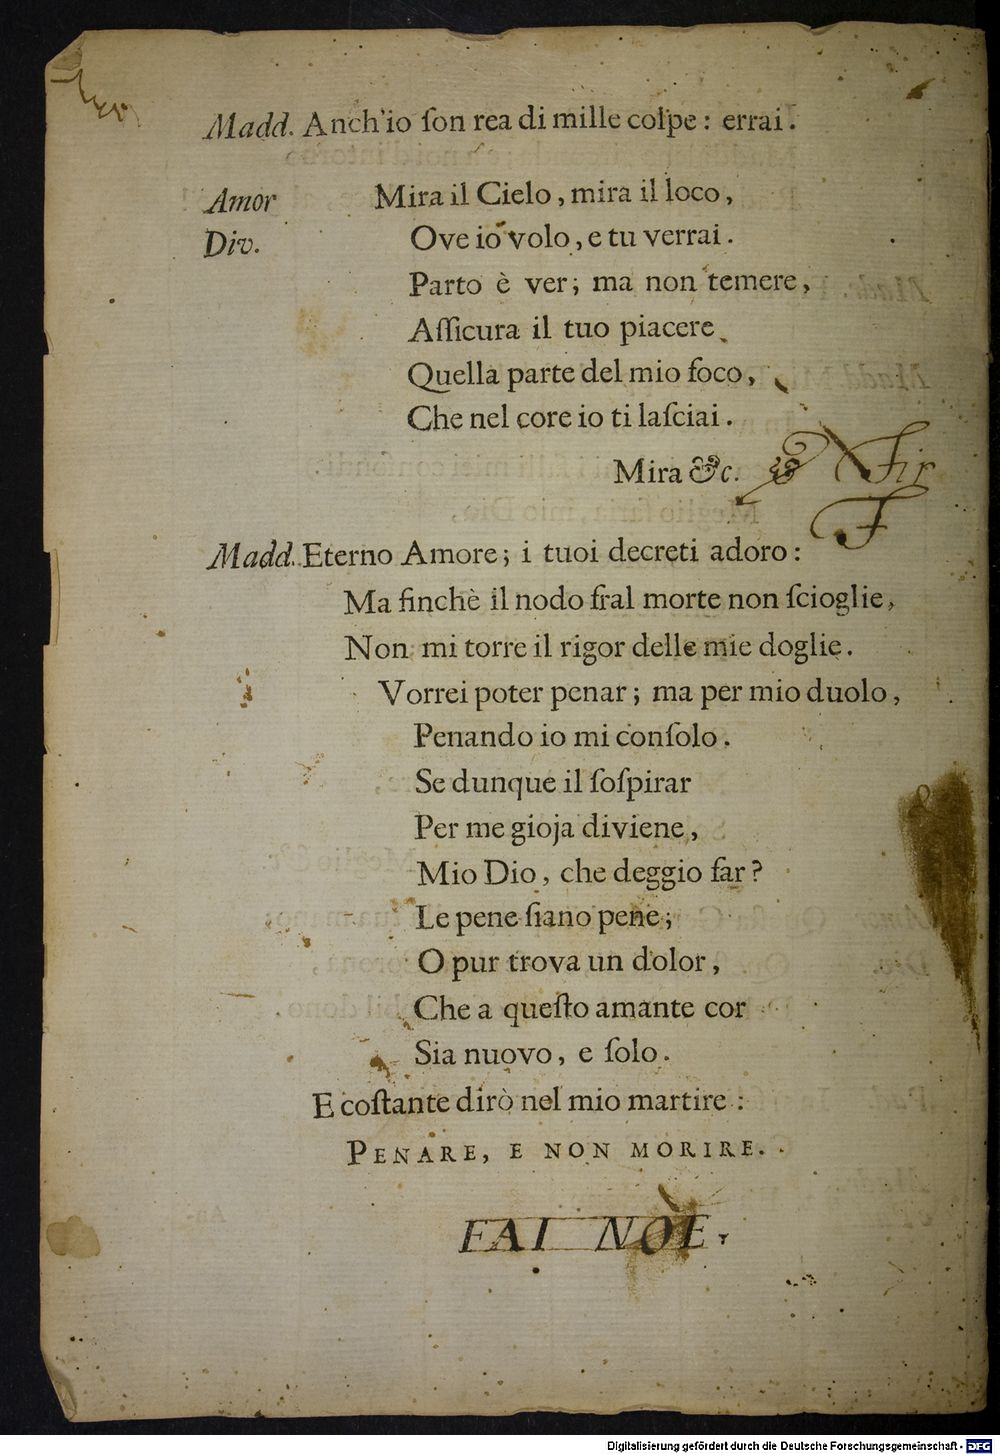 Madd. Anch'io ſon rea di mille colpe: errai.
Amor Mira il Cielo, mira il loco,
Div. Ove io volo, e tu verrai.
Parto è ver; ma non temere,
Aſſicura il tuo piacere
Quella parte del mio foco,
Che nel core io ti laſciai.
Mira &c.
Fir
F
Madd. Eterno Amore; i tuoi decreti adoro:
Ma finchè il nodo fral morte non ſcioglie,
Non mi torre il rigor delle mie doglie.
Vorrei poter penar; ma per mio duolo,
Penando io mi conſolo.
Se dunque il ſoſpirar
Per me gioja diviene,
Mio Dio, che deggio far?
Le pene ſiano pene;
O pur trova un dolor,
Che a queſto amante cor
Sia nuovo, e ſolo.
E coſtante dirò nel mio martire:
PENARE, E NON MORIRE.
FAI NOE.
Digitalisierung gefördert durch die Deutsche Forschungsgemeinschaft - DFG